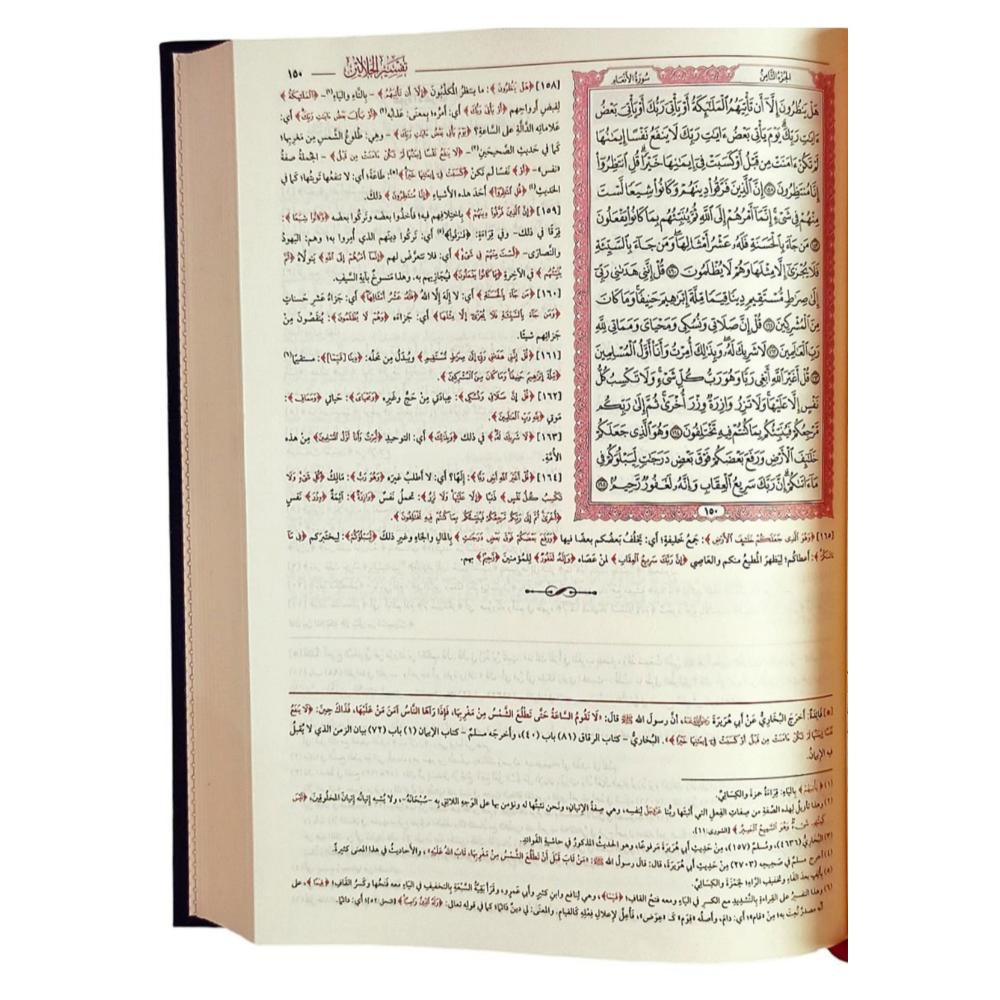 ١٥٠
تفسير الجلالين
سورة الأنعام
الجزء الثامن
هَلْ يَنظُرُونَ إِلَّا أَن تَأْتِيَهُمُ الْمَلَائِكَةُ أَوْ يَأْتِيَ رَبُّكَ أَوْ يَأْتِيَ بَعْضُ
ءَايَاتِ رَبِّكَ يَوْمَ يَأْتِي بَعْضُ ءَايَاتِ رَبِّكَ لَا يَنفَعُ نَفْسًا إِيمَانُهَا
لَمْ تَكُنْ ءَامَنَتْ مِن قَبْلُ أَوْ كَسَبَتْ فِي إِيمَانِهَا خَيْرًا قُلِ انتَظِرُوا
إِنَّا مُنتَظِرُونَ ١٥٨ إِنَّ الَّذِينَ فَرَّقُوا دِينَهُمْ وَكَانُوا شِيَعًا لَّسْتَ
مِنْهُمْ فِي شَيْءٍ إِنَّمَا أَمْرُهُمْ إِلَى اللَّهِ ثُمَّ يُنَبِّئُهُم بِمَا كَانُوا يَفْعَلُونَ
١٥٩ مَن جَاءَ بِالْحَسَنَةِ فَلَهُ عَشْرُ أَمْثَالِهَا وَمَن جَاءَ بِالسَّيِّئَةِ
فَلَا يُجْزَى إِلَّا مِثْلَهَا وَهُمْ لَا يُظْلَمُونَ ١٦٠ قُلْ إِنَّنِي هَدَانِي رَبِّي
إِلَى صِرَاطٍ مُّسْتَقِيمٍ دِينًا قِيَمًا مِّلَّةَ إِبْرَاهِيمَ حَنِيفًا وَمَا كَانَ
مِنَ الْمُشْرِكِينَ ١٦١ قُلْ إِنَّ صَلَاتِي وَنُسُكِي وَمَحْيَايَ وَمَمَاتِي لِلَّهِ
رَبِّ الْعَالَمِينَ ١٦٢ لَا شَرِيكَ لَهُ وَبِذَلِكَ أُمِرْتُ وَأَنَا أَوَّلُ الْمُسْلِمِينَ
١٦٣ قُلْ أَغَيْرَ اللَّهِ أَبْغِي رَبًّا وَهُوَ رَبُّ كُلِّ شَيْءٍ وَلَا تَكْسِبُ كُلُّ
نَفْسٍ إِلَّا عَلَيْهَا وَلَا تَزِرُ وَازِرَةٌ وِزْرَ أُخْرَى ثُمَّ إِلَى رَبِّكُم
مَّرْجِعُكُمْ فَيُنَبِّئُكُم بِمَا كُنتُمْ فِيهِ تَخْتَلِفُونَ ١٦٤ وَهُوَ الَّذِي جَعَلَكُمْ
خَلَائِفَ الْأَرْضِ وَرَفَعَ بَعْضَكُمْ فَوْقَ بَعْضٍ دَرَجَاتٍ لِّيَبْلُوَكُمْ فِي
مَا ءَاتَاكُمْ إِنَّ رَبَّكَ سَرِيعُ الْعِقَابِ وَإِنَّهُ لَغَفُورٌ رَّحِيمٌ ١٦٥
١٥٠
[١٥٨] ﴿هَل يَنظُرُونَ﴾: ما ينتظرُ المكذِّبونَ ﴿إِلَّا أَن تَأْتِيَهُمُ﴾ - بالتَّاءِ والياءِ(١)- ﴿الْمَلَائِكَةُ﴾
لقبضِ أرواحِهم ﴿أَوْ يَأْتِيَ رَبُّكَ﴾ أي: أمرُه؛ بمعنى: عذابُه(٢) ﴿أَوْ يَأْتِيَ بَعْضُ ءَايَاتِ رَبِّكَ﴾ أي:
علاماتِه الدَّالَّةِ على السَّاعةِ؟ ﴿يَوْمَ يَأْتِي بَعْضُ ءَايَاتِ رَبِّكَ﴾ - وهي: طُلوعُ الشَّمسِ من مغرِبِها؛
كما في حديثِ الصَّحيحينِ(٣)- ﴿لَا يَنفَعُ نَفْسًا إِيمَانُهَا لَمْ تَكُنْ ءَامَنَتْ مِن قَبْلُ﴾ - الجملةُ صفةُ
«نفس»- ﴿أَوْ﴾ نفسًا لم تكنْ ﴿كَسَبَتْ فِي إِيمَانِهَا خَيْرًا﴾(*): طاعةً؛ أي: لا تنفعُها توبتُها؛ كما في
الحديثِ(٤) ﴿قُلِ انتَظِرُوا﴾ أحدَ هذه الأشياءِ ﴿إِنَّا مُنتَظِرُونَ﴾ ذلك.
[١٥٩] ﴿إِنَّ الَّذِينَ فَرَّقُوا دِينَهُمْ﴾ باختلافِهم فيه؛ فأخذُوا بعضَه وتركُوا بعضَه ﴿وَكَانُوا شِيَعًا﴾:
فِرَقًا في ذلك- وفي قراءةٍ: ﴿فَارَقُوا﴾(٥) أي: تركُوا دينَهم الذي أُمروا به؛ وهم: اليهودُ
والنَّصارى- ﴿لَّسْتَ مِنْهُمْ فِي شَيْءٍ﴾ أي: فلا تتعرَّضْ لهم ﴿إِنَّمَا أَمْرُهُمْ إِلَى اللَّهِ﴾ يتولَّاهُ ﴿ثُمَّ
يُنَبِّئُهُم﴾ في الآخرةِ ﴿بِمَا كَانُوا يَفْعَلُونَ﴾ فيُجازيهم به، وهذا منسوخٌ بآيةِ السَّيفِ.
[١٦٠] ﴿مَن جَاءَ بِالْحَسَنَةِ﴾ أي: لا إلهَ إلَّا اللهُ ﴿فَلَهُ عَشْرُ أَمْثَالِهَا﴾ أي: جزاءُ عشرِ حسناتٍ
﴿وَمَن جَاءَ بِالسَّيِّئَةِ فَلَا يُجْزَى إِلَّا مِثْلَهَا﴾ أي: جزاءَه ﴿وَهُمْ لَا يُظْلَمُونَ﴾: يُنقَصونَ من
جزائِهم شيئًا.
[١٦١] ﴿قُلْ إِنَّنِي هَدَانِي رَبِّي إِلَى صِرَاطٍ مُّسْتَقِيمٍ﴾ ويُبدَلُ مِن محلِّه: ﴿دِينًا قِيَمًا﴾: مستقيمًا(٦)
﴿مِّلَّةَ إِبْرَاهِيمَ حَنِيفًا وَمَا كَانَ مِنَ الْمُشْرِكِينَ﴾.
[١٦٢] ﴿قُلْ إِنَّ صَلَاتِي وَنُسُكِي﴾: عبادتي مِن حجٍّ وغيرِه ﴿وَمَحْيَايَ﴾: حياتي ﴿وَمَمَاتِي﴾:
موتي ﴿لِلَّهِ رَبِّ الْعَالَمِينَ﴾.
[١٦٣] ﴿لَا شَرِيكَ لَهُ﴾ في ذلك ﴿وَبِذَلِكَ﴾ أي: التوحيدِ ﴿أُمِرْتُ وَأَنَا أَوَّلُ الْمُسْلِمِينَ﴾ مِن هذه
الأمَّةِ.
[١٦٤] ﴿قُلْ أَغَيْرَ اللَّهِ أَبْغِي رَبًّا﴾: إلهًا؟ أي: لا أطلبُ غيرَه ﴿وَهُوَ رَبُّ﴾: مالكُ ﴿كُلِّ شَيْءٍ وَلَا
تَكْسِبُ كُلُّ نَفْسٍ﴾ ذنبًا ﴿إِلَّا عَلَيْهَا وَلَا تَزِرُ﴾: تحملُ نفسٌ ﴿وَازِرَةٌ﴾: آثمةٌ ﴿وِزْرَ﴾ نفسٍ
﴿أُخْرَى ثُمَّ إِلَى رَبِّكُم مَّرْجِعُكُمْ فَيُنَبِّئُكُم بِمَا كُنتُمْ فِيهِ تَخْتَلِفُونَ﴾.
[١٦٥] ﴿وَهُوَ الَّذِي جَعَلَكُمْ خَلَائِفَ الْأَرْضِ﴾: جمعُ خليفةٍ؛ أي: يخلُفُ بعضُكم بعضًا فيها ﴿وَرَفَعَ بَعْضَكُمْ فَوْقَ بَعْضٍ دَرَجَاتٍ﴾ بالمالِ والجاهِ وغيرِ ذلك ﴿لِّيَبْلُوَكُمْ﴾: ليختبرَكم ﴿فِي مَا
ءَاتَاكُمْ﴾: أعطاكُم؛ ليَظهرَ المُطيعُ منكم والعاصِي ﴿إِنَّ رَبَّكَ سَرِيعُ الْعِقَابِ﴾ لمنْ عَصاه ﴿وَإِنَّهُ لَغَفُورٌ﴾ للمُؤمنينَ ﴿رَّحِيمٌ﴾ بهم.
[*] فائدة: أخرَجَ البُخاريُّ عَنْ أبي هُريرَةَ رضي الله عنه، أنَّ رسولَ الله ﷺ قالَ: «لَا تَقُومُ السَّاعَةُ حَتَّى تَطْلُعَ الشَّمْسُ مِنْ مَغْرِبِهَا، فَإِذَا رَآهَا النَّاسُ آمَنَ مَنْ عَلَيْهَا، فَذَاكَ حِينَ: ﴿لَا يَنفَعُ
نَفْسًا إِيمَانُهَا لَمْ تَكُنْ ءَامَنَتْ مِن قَبْلُ أَوْ كَسَبَتْ فِي إِيمَانِهَا خَيْرًا﴾». البُخاريُّ - كتاب الرقاق (٨١) باب (٤٠)، وأخرجَه مسلمٌ - كتاب الإيمان (١) باب (٧٢) بيان الزمن الذي لا يُقبَلُ
فيه الإيمانُ.
(١) ﴿يَأْتِيَهُمُ﴾ بالياءِ: قِراءةُ حمزةَ والكِسائيِّ.
(٢) وهذا تأويلٌ لهذه الصِّفةِ مِن صِفاتِ الفِعلِ التي أثبتَها ربُّنا عَزَّوَجَلَّ لنفسِه، وهي صِفةُ الإتيانِ، ونحن نثبتُها له ونؤمن بها على الوَجهِ اللائقِ به -سُبحانَهُ-، ولا يُشبِه إتيانُه إتيانَ المخلوقينَ، ﴿لَيْسَ
كَمِثْلِهِ شَيْءٌ وَهُوَ السَّمِيعُ الْبَصِيرُ﴾ [الشورى: ١١].
(٣) البُخاريُّ (٤٦٣٦)، ومُسلمٌ (١٥٧)، مِنْ حديثِ أبي هُريرَةَ مَرفوعًا، وهو الحديثُ المذكورُ في حاشيةِ الفَوائدِ.
(٤) أخرجَ مسلمٌ في صَحيحِه (٢٧٠٣) مِنْ حديثِ أبي هُريرَةَ، قالَ: قالَ رسولُ الله ﷺ: «مَنْ تَابَ قَبْلَ أَنْ تَطْلُعَ الشَّمْسُ مِنْ مَغْرِبِهَا، تَابَ اللهُ عَلَيْهِ»، والأحاديثُ في هذا المعنى كثيرةٌ.
(٥) بألفٍ بعدَ الفاءِ وتخفيفِ الرَّاءِ: لحمزةَ والكِسائيِّ.
(٦) وهذا التفسيرُ على القِراءةِ بالتَّشديدِ مع الكسرِ في الياءِ ومعه فتحُ القافِ؛ ﴿قَيِّمًا﴾، وهي لنافعٍ وابنِ كثيرٍ وأبي عمرٍو، وقرَأ بَقيَّةُ السَّبعةِ بالتَّخفيفِ في الياءِ معه فتحُها وكسرُ القافِ؛ ﴿قِيَمًا﴾، على
أنَّه مصدرٌ نُعِتَ به؛ مِنْ «قامَ»؛ أي: دامَ، وأصلُه «قِوَم» كـ «عِوَض»، فأُعِلَّ لإعلالِ فِعلِه كالقِيام. والمعنى: في دينٍ دائمًا؛ كما في قولِه تعالى: ﴿وَلَهُ الدِّينُ وَاصِبًا﴾ [النحل: ٥٢]؛ أي: دائمًا.